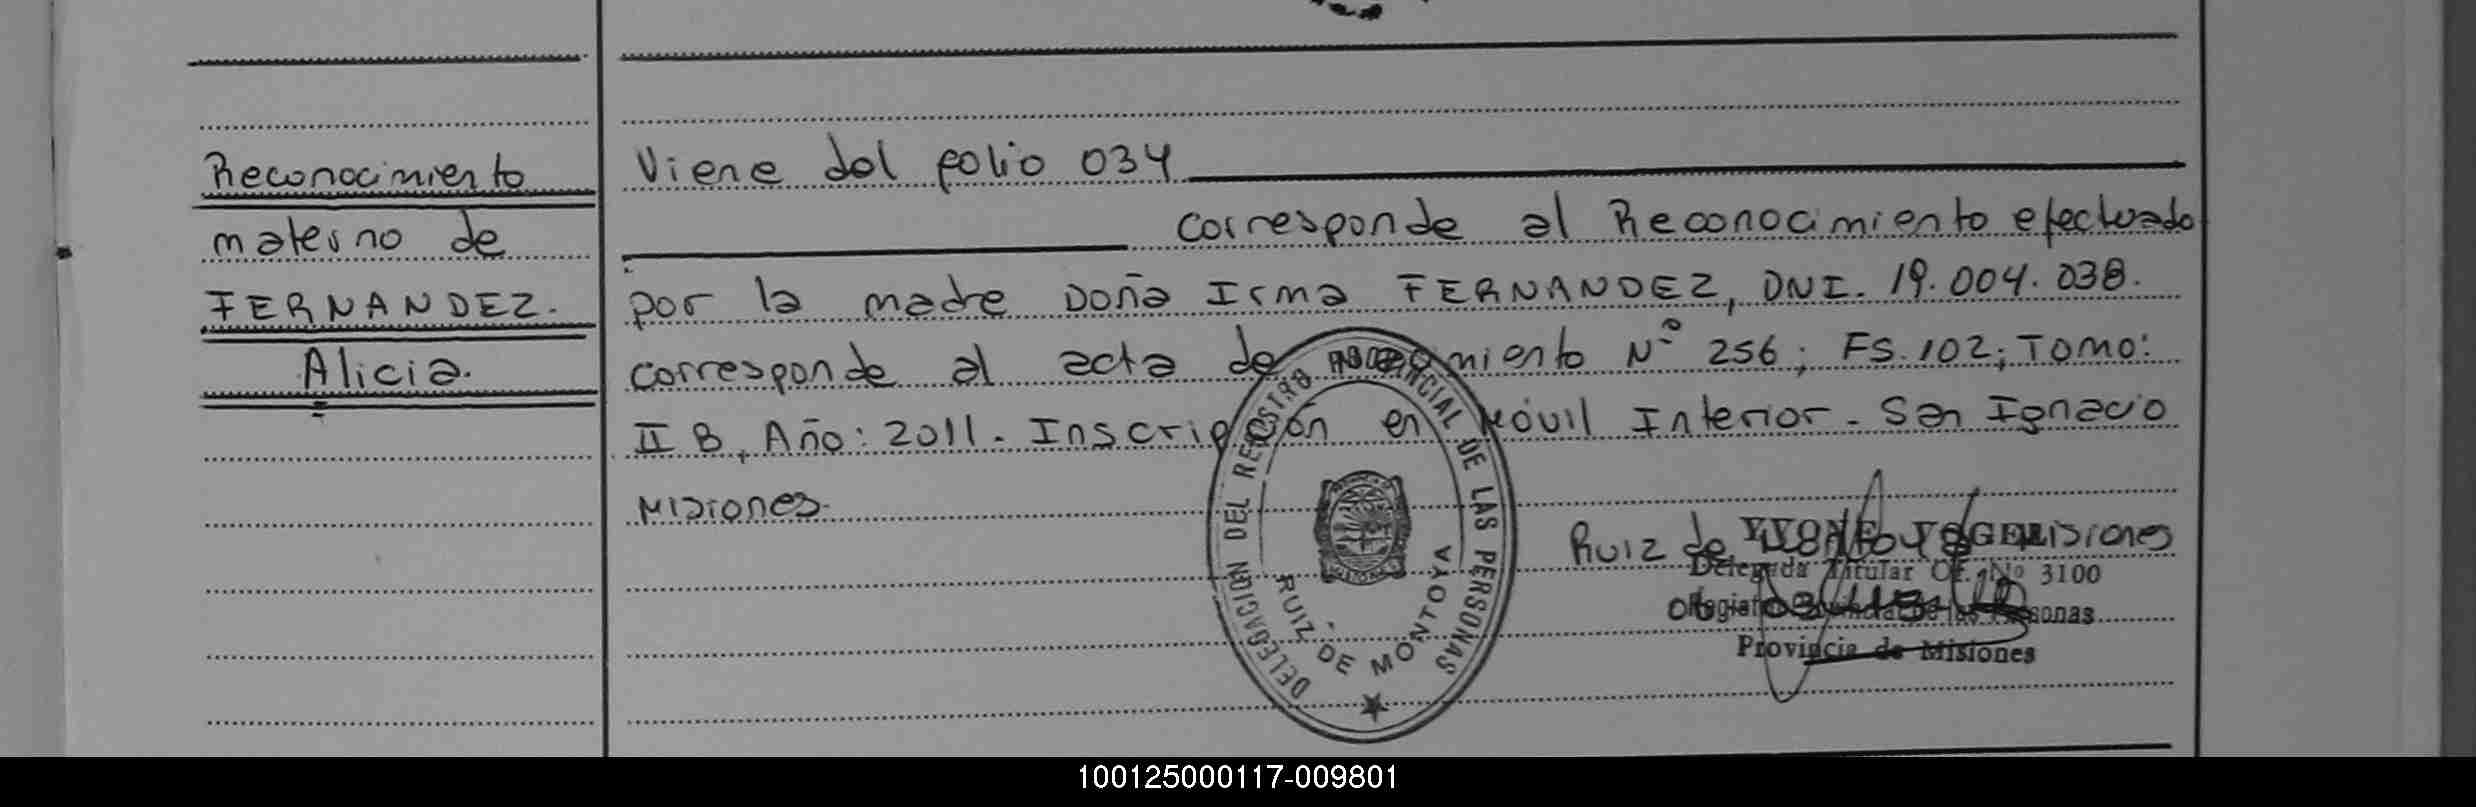 Reconocimiento
materno de
FERNANDEZ.
Alicia.
Viene del folio 034
corresponde al Reconocimiento efectuado
por la madre Doña Irma FERNANDEZ, DNI. 19.004.038.
corresponde al acta de nacimiento Nº 256; FS.102; Tomo:
II B, Año: 2011. Inscripción en Móvil Interior. San Ignacio
Misiones.
DELEGACIÓN DEL REGISTRO PROVINCIAL DE LAS PERSONAS
RUIZ DE MONTOYA
Ruiz de Misiones
Delegada Titular Of. Nº 3100
Registro Provincial de las Personas
Provincia de Misiones
100125000117-009801